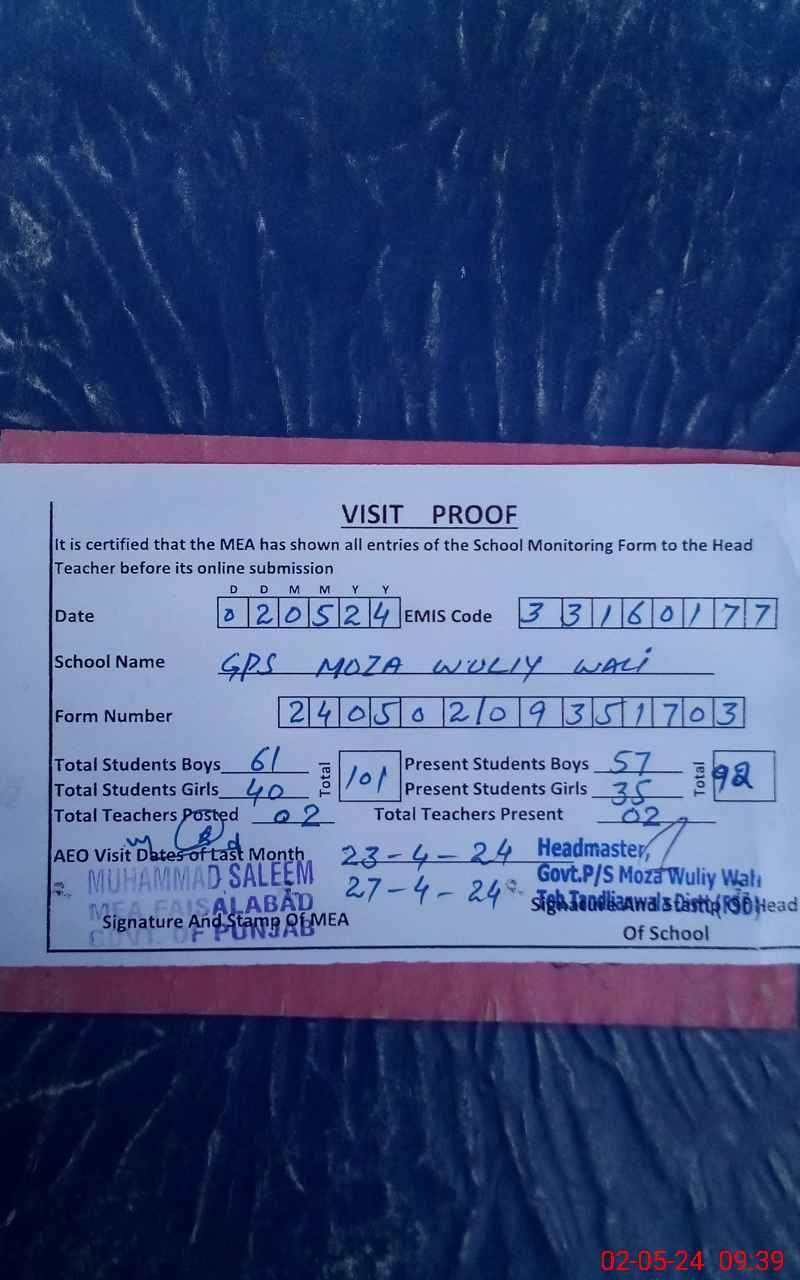 VISIT PROOF
It is certified that the MEA has shown all entries of the School Monitoring Form to the Head
Teacher before its online submission
D D M M Y Y
Date 020524 EMIS Code 33160177
School Name GPS MOZA WULIY WALI
Form Number 240502109351703
Total Students Boys 61 Total 101 Present Students Boys 57 Total 92
Total Students Girls 40 Present Students Girls 35
Total Teachers Posted 02 Total Teachers Present 02
AEO Visit Dates of Last Month 23-4-24
27-4-24
MUHAMMAD SALEEM
MEA FAISALABAD
GOVT. OF PUNJAB
Signature And Stamp Of MEA
Headmaster,
Govt.P/S Moza Wuliy Wali
Signature And Stamp Of Head
Of School
02-05-24 09:39